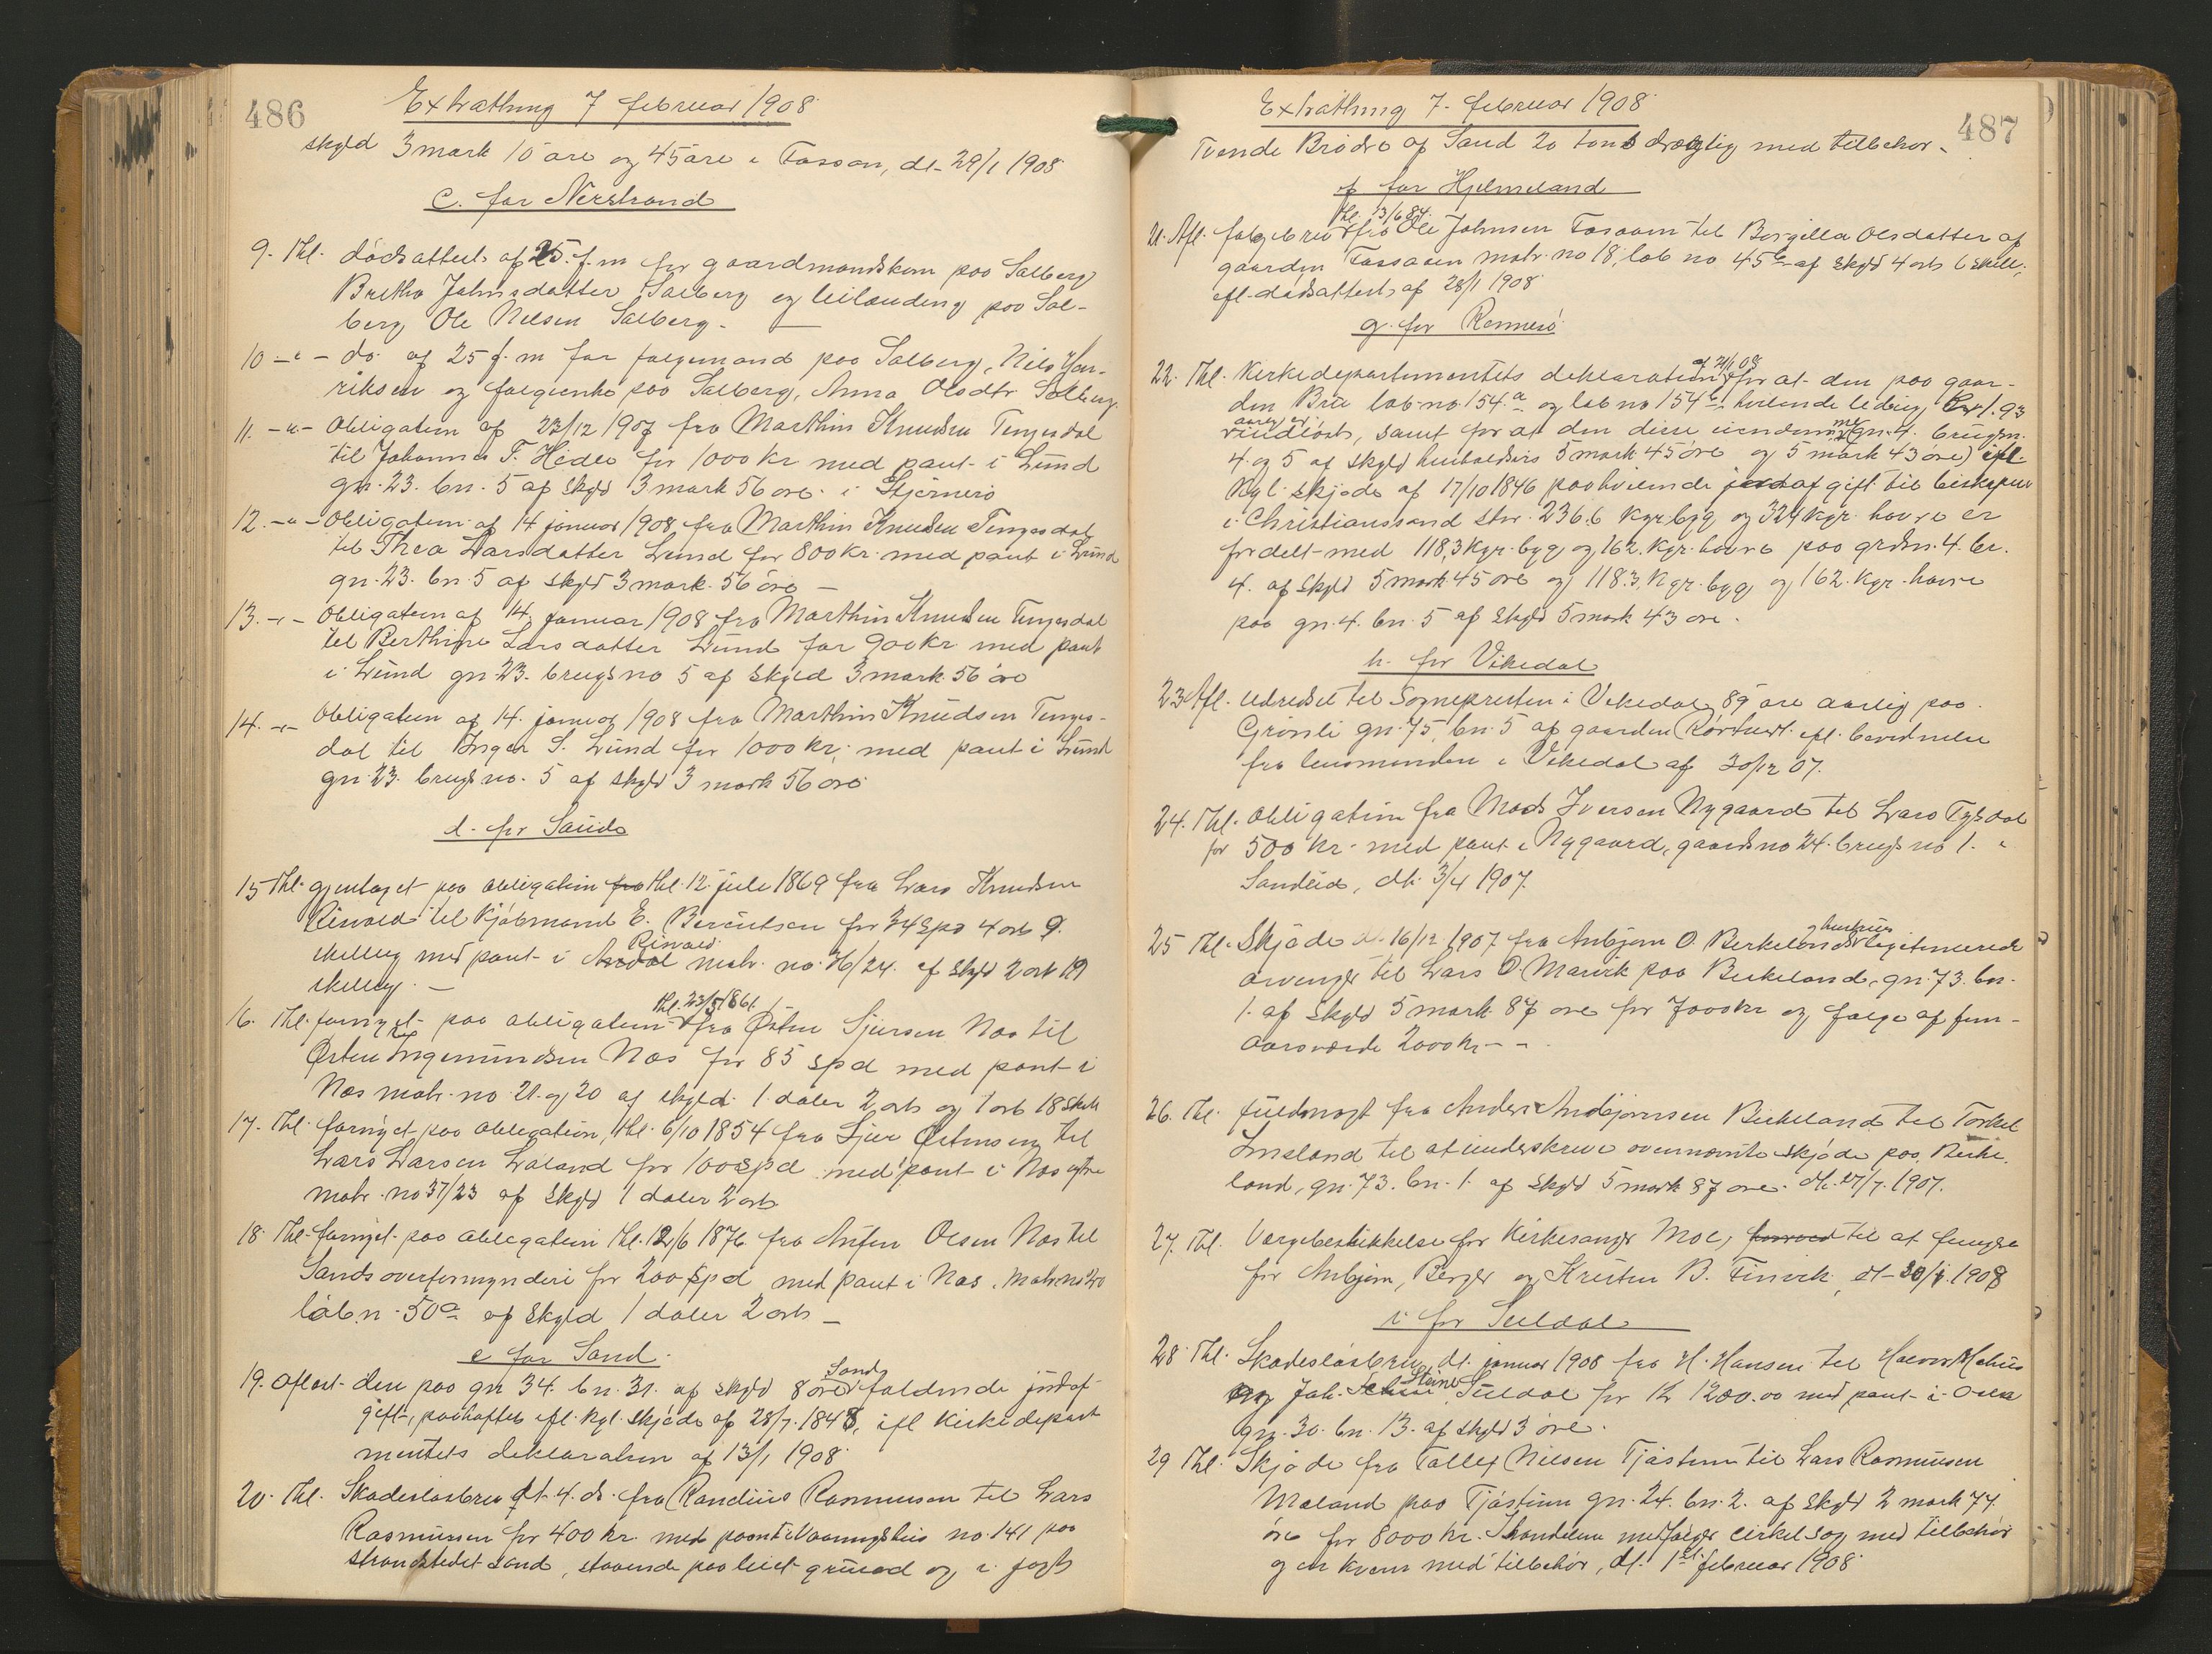 486
Extrathing 7 februar 1908
skyld 3 mark 10 øre og 45 øre i Fossan, dt. 29/1 1908
c. for Nerstrand
9. Thl. dødsattest af 25. f.m for gaardmandskone paa Salberg
Bretha Johnsdatter Salberg og leilænding paa Sal-
berg Ole Nelsen Salberg. —
10 -"- do. af 25 f. m for folgemand paa Salberg, Nils Hen-
riksen og folgeenke paa Salberg, Anna Olsdtr Salberg.
11. -"- Obligation af 23/12 1907 fra Marthin Knudsen Tengesdal
til Johannes T. Hedle for 1000 kr med pant i Lund
gn. 23. bn. 5 af skyld 3 mark 56 øre i Stjernerø
12. -"- Obligation af 14 januar 1908 fra Marthin Knudsen Tengesdal
til Thea Larsdatter Lund for 800 kr. med pant i Lund
gn. 23. bn. 5 af skyld 3 mark 56 øre —
13. -"- Obligation af 14. januar 1908 fra Marthin Knudsen Tengesdal
til Berthine Larsdatter Lund for 900 kr med pant
i Lund gn 23. brugsno 5 af skyld 3 mark 56 øre
14. -"- Obligation af 14. januar 1908 fra Marthin Knudsen Tenges-
dal til Inger S. Lund for 1000 kr, med pant i Lund
gn. 23. brugs no. 5 af skyld 3 mark 56 øre
d. for Saude
15 Thl. gjentaget paa obligation fra thl. 12 juli 1869 fra Lars Knudsen
Rivald til kjøbmand E. Berentsen for 34 spd 4 ort 9.
Rivald
skilling med pant i Aardal matr. no. 36/24. af skyld 2 ort 19
skilling. —
thl. 23/5 1861.
16. Thl. fornyet paa obligation fra Østen Sjursen Næs til
Østen Ingemundsen Næs for 85 spd med pant i
Næs matr. no 21. og 20 af skyld 1 daler 2 ort og 1 ort 18 skill
17. Thl. fornyet paa obligation, thl. 6/10 1854 fra Sjur Østensen til
Lars Larsen Laland for 100 spd med pant i Næs ytre
matr. no 37/23 af skyld 1 daler 2 ort
18. Thl. fornyet paa obligation thl. 12/6 1876 fra Anfin Olsen Næs til
Sands overformynderi for 200 spd med pant i Næs. matr. no 20
løb.n. 50a af skyld 1 daler 2 ort —
e for Sand.
Sands
19. Aflæst den paa gn 34. bn. 31. af skyld 8 øre faldende jordaf-
gift, paaheftet efl. kgl. skjøde af 28/7. 1848, ifl Kirkedepart
mentets deklaration af 13/1 1908.
20. Thl. Skadesløsbrev dt. 4. ds. fra Randius Rasmussen til Lars
Rasmussen for 400 kr. med pant i Vaaningshus no. 141 paa
Strandstedet Sand, staaende paa leiet grund og i jagt
487
Extrathing 7. februar 1908
Tvende Brødre af Sand 20 tons drægtig med tilbehør.
f for Hjelmeland
thl. 13/6 84.
21. Afl. folgebrev fra Ole Johnsen Fossaan til Borgilla Olsdatter af
gaarden Fossaaen matr. no 18, løb no 45b af skyld 4 ort 6 skill.
efl. dødsattest af 28/1 1908
g. for Rennesø
af 21/1 08
22. Thl. Kirkedepartementets deklaration for at den paa gaar-
den Bru løb-no 154.a og løb no 154b. hvilende leding kr. 1.93
aarlig er
indløst, samt for at den disse eiendomme (gn. 4. brugsn.
4. og 5 af skyld henholdsvis 5 mark 45 øre og 5 mark 43 øre) ifl.
kgl. skjøde af 17/10 1846 paahvilende jordafgift til bispen
i Christianssand stor 236.6 kgr. byg og 324 kgr. havre er
fordelt med 118,3 kgr. byg og 162. kgr. havre paa grdsn. 4. br.
4. af skyld 5 mark 45 øre og 118.3. kgr. byg og 162. kgr. havre
paa gn. 4. bn. 5 af skyld 5 mark 43 øre.
h. for Vikedal
23 Afl. udredsel til Sognepresten i Vikedal 89 øre aarlig paa
Grønli gn. 75, bn. 5 af gaarden efl. bevidnelse
fra lensmanden i Vikedal af 30/12 07.
24. Thl. obligation fra Mads Iversen Nygaard til Lars Tysdal
for 500 kr. med pant i Nygaard, gaardsno 24. brugsno 1. i
Sandeid, dt. 3/4 1907.
og hustrues
25 Thl. Skjøde dt. 16/12 1907 fra Anbjørn O. Berkeland legitimerede
arvinger til Lars O. Marvik paa Birkeland, gn. 73. bn.
1. af skyld 5 mark 87 øre for 7000 kr og folge af fem-
aarsværdi 2000 kr. — —
26. Thl. fuldmagt fra Anders Anbjørnsen Birkeland til Torkel
Imsland til at underskrive ovennævnte skjøde paa Birke-
land, gn. 73. bn. 1. af skyld 5 mark 87 øre. dt. 27/7. 1907.
27. Thl. Værgebeskikkelse for Kirkesanger Moe, til at fungere
for Anbjørn, Berger og Kristen B. Finvik, dt. 30/1. 1908
i for Suldal
28. Thl. Skadesløsbrev, dt. januar 1908 fra H. Hansen til
Steine
og Joh. Suldal for kr 1200.00 med pant i
gn. 30. bn. 13. af skyld 3 øre.
29 Thl. Skjøde fra Tollef Nilsen Tjøstem til Lars Rasmussen
Moland paa Tjøstem gn. 24. bn. 2. af skyld 2 mark 74.
øre for 8000 kr. I handelen medfølger cirkelsag med tilbehør
og en kvern med tilbehør, dt. 1st februar 1908